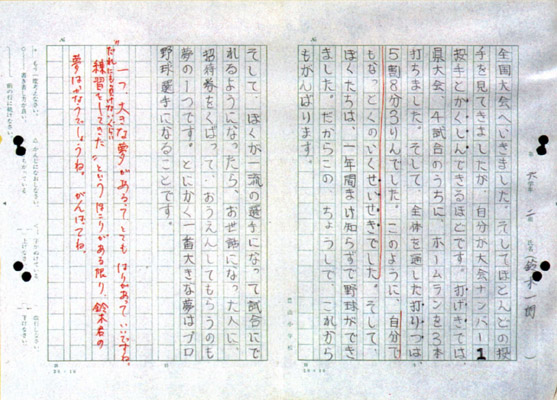 六年 二 組 氏名 鈴木一朗
全国大会へいきました。そしてほとんどの投
手を見てきましたが、自分が大会ナンバー1
投手とかくしんできるほどです。打げきでは、
県大会 4試合のうちに、ホームランを3本
打ちました。そして、全体を通した打りつは、
5割8分3りんでした。このように、自分で
もなっとくのいくせいせきでした。そして、
ぼくたちは、一年間まけ知らずで野球ができ
ました。だからこの ちょうしで、これから
もがんばります。
そして、ぼくが一流の選手になって試合にで
れるようになったら、お世話になった人に、
招待券をくばって、おうえんしてもらうのも
夢の1つです。とにかく一番大きな夢はプロ
野球選手になることです。
一つ、大きな夢があるってとても はりがあっていいですね。
"だれにもまけないくらい
練習をしてきた"というほこりがある限り、鈴木君の
夢はかなうでしょうね。がんばってね。